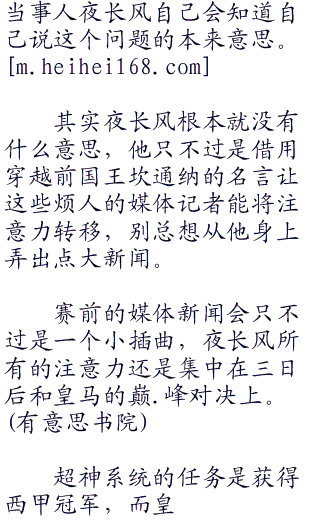 当事人夜长风自己会知道自
己说这个问题的本来意思。
[m.heihei168.com]
其实夜长风根本就没有
什么意思，他只不过是借用
穿越前国王坎通纳的名言让
这些烦人的媒体记者能将注
意力转移，别总想从他身上
弄出点大新闻。
赛前的媒体新闻会只不
过是一个小插曲，夜长风所
有的注意力还是集中在三日
后和皇马的巅.峰对决上。
(有意思书院)
超神系统的任务是获得
西甲冠军，而皇